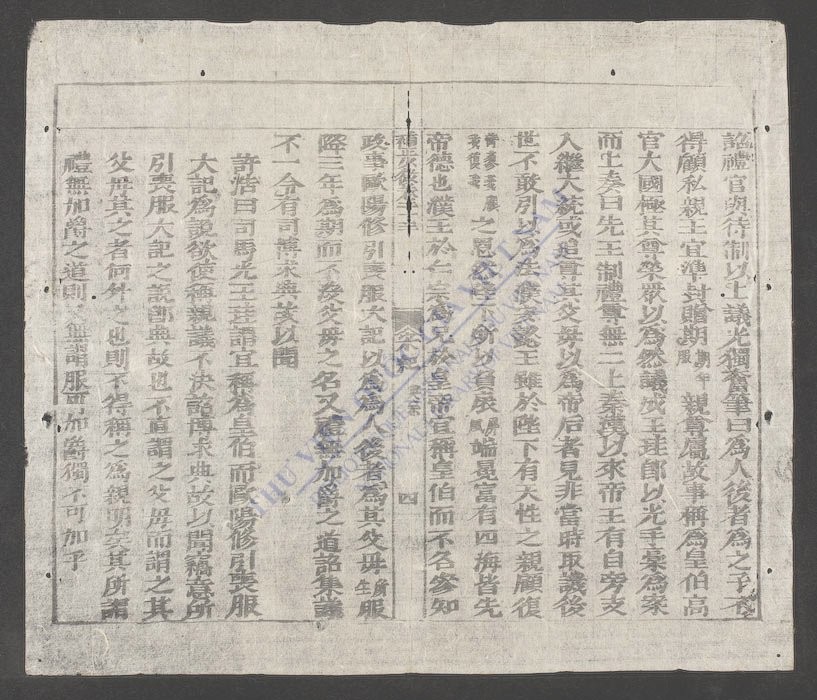 詔禮官與待制以上議光獨奮筆曰爲人後者爲之子不
得顧私親王宜準封贈期期年服親尊屬故事稱爲皇伯高
官大國極其尊榮眾以爲然議成王珪即以光手藁爲案
而上奏曰先王制禮尊無二上秦漢以來帝王有自旁支
入繼大統或追尊其父毋以爲帝后者見非當時取議後
世不敢引以爲法濮安懿王雖於陛下有天性之親顧復
之恩然陛下所以負扆端冕富有四海皆先
帝德也濮王於仁宗爲兄於皇帝宜稱皇伯而不名參知
四
政事歐陽修引喪服大記以爲爲人後者爲其父毋所生服
降三年爲期而不沒父毋之名又禮無加爵之道詔集議
不一令有司博求典故以聞
許浩曰司馬光王珪謂宜稱爲皇伯而歐陽修引喪服
大記爲說欲使稱親議不決詔博求典故以聞竊意所
引喪服大記之說即典故也不直謂之父毋而謂之其
父毋其之者何外之也則不得稱之爲親明矣其所謂
禮無加爵之道則無謂服可加爵獨不可加乎